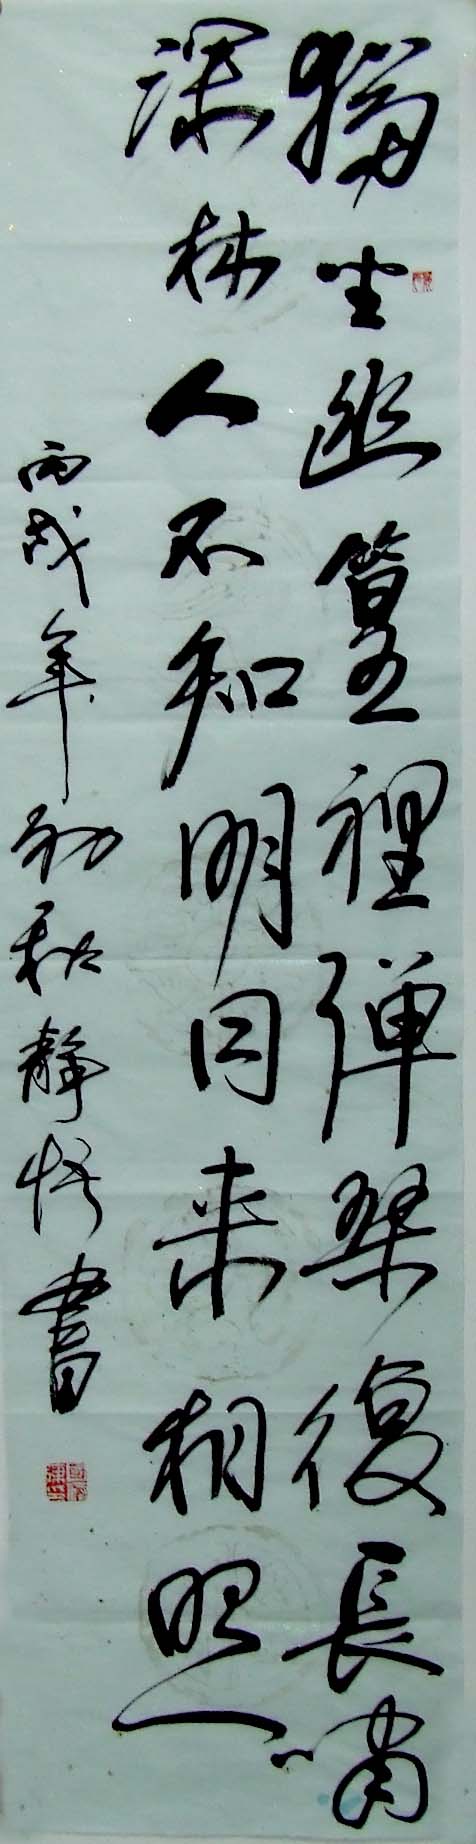 獨坐幽篁裡弹琴復長嘯
深林人不知明日来相照
丙戌年初秋靜悟書